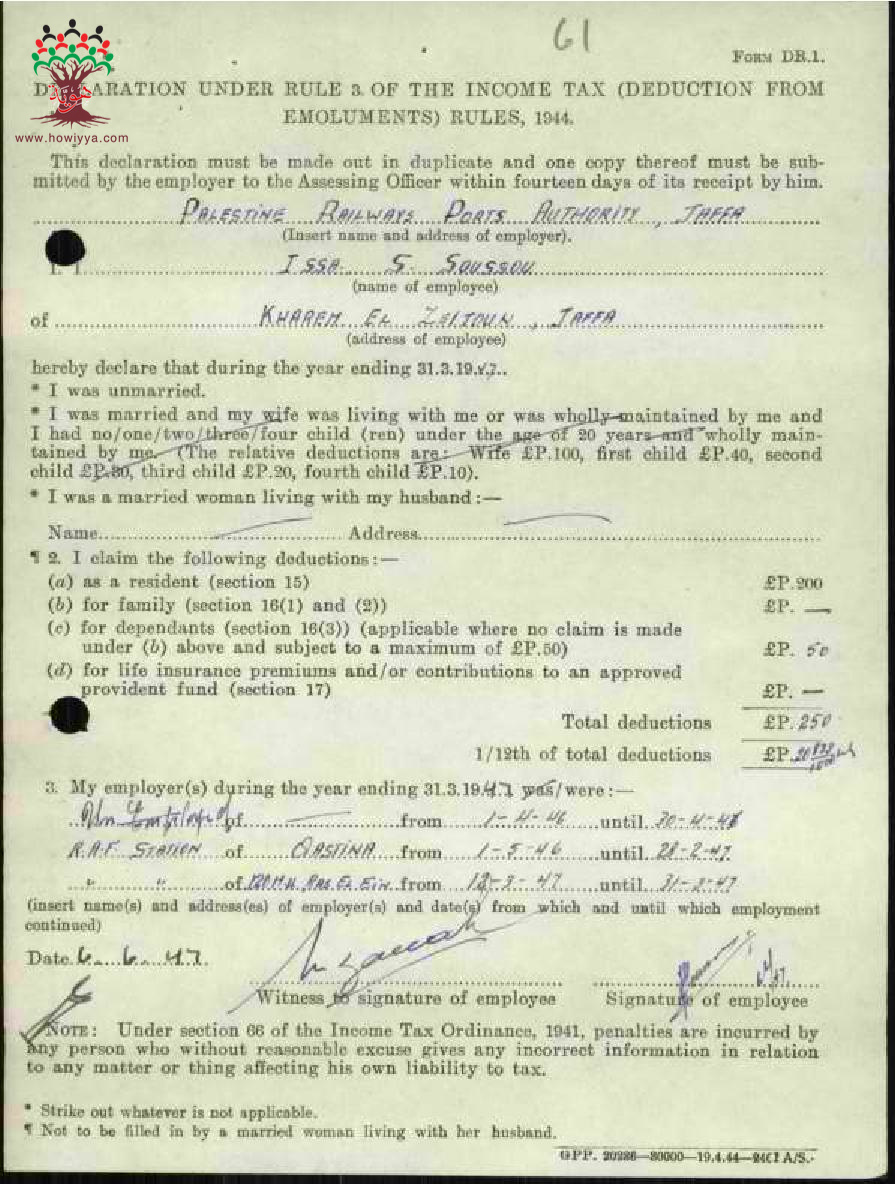 61
FORM DB.1.
DECLARATION UNDER RULE 3 OF THE INCOME TAX (DEDUCTION FROM
EMOLUMENTS) RULES, 1944.
www.howiyya.com
This declaration must be made out in duplicate and one copy thereof must be sub-
mitted by the employer to the Assessing Officer within fourteen days of its receipt by him.
PALESTINE RAILWAYS PORTS AUTHORITY, JAFFA
(Insert name and address of employer).
1. I ISSA S. SOUSSOU
(name of employee)
of KHAREM EL ZEITOUN, JAFFA
(address of employee)
hereby declare that during the year ending 31.3.1947.
* I was unmarried.
* I was married and my wife was living with me or was wholly maintained by me and
I had no/one/two/three/four child (ren) under the age of 20 years and wholly main-
tained by me. (The relative deductions are: Wife £P.100, first child £P.40, second
child £P.30, third child £P.20, fourth child £P.10).
* I was a married woman living with my husband:—
Name Address
¶ 2. I claim the following deductions:—
(a) as a resident (section 15) £P.200
(b) for family (section 16(1) and (2)) £P. —
(c) for dependants (section 16(3)) (applicable where no claim is made
under (b) above and subject to a maximum of £P.50) £P. 50
(d) for life insurance premiums and/or contributions to an approved
provident fund (section 17) £P. —
Total deductions £P. 250
1/12th of total deductions £P. 20
3. My employer(s) during the year ending 31.3.1947 was/were:—
of — from 1-4-46 until 30-4-46
R.A.F. STATION of QASTINA from 1-5-46 until 28-2-47
" " of RAS EL EIN from 18-3-47 until 31-3-47
(insert name(s) and address(es) of employer(s) and date(s) from which and until which employment
continued)
Date 6. 6. 47.
Witness to signature of employee Signature of employee
NOTE: Under section 66 of the Income Tax Ordinance, 1941, penalties are incurred by
any person who without reasonable excuse gives any incorrect information in relation
to any matter or thing affecting his own liability to tax.
* Strike out whatever is not applicable.
¶ Not to be filled in by a married woman living with her husband.
GPP. 20286—80000—19.4.44—